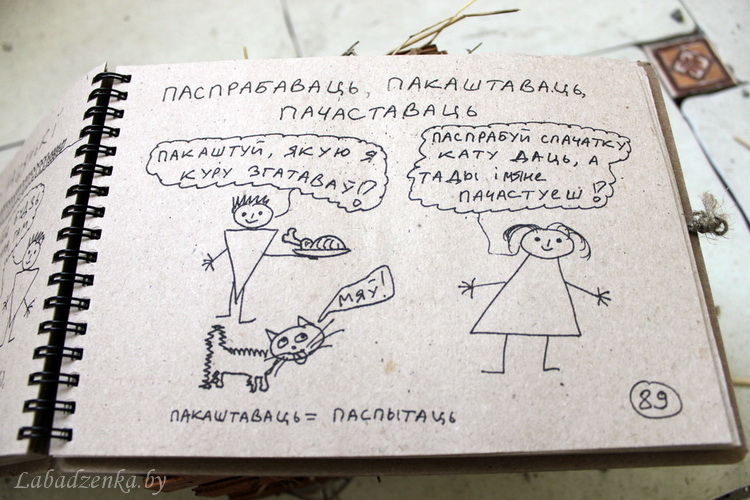 ПАСПРАБАВАЦЬ, ПАКАШТАВАЦЬ,
ПАЧАСТАВАЦЬ
ПАКАШТУЙ, ЯКУЮ Я
КУРУ ЗГАТАВАЎ?
ПАСПРАБУЙ СПАЧАТКУ
КАТУ ДАЦЬ, А
ТАДЫ І МЯНЕ
ПАЧАСТУЕШ!
МЯЎ!
ПАКАШТАВАЦЬ = ПАСПЫТАЦЬ
89
Labadzenka.by